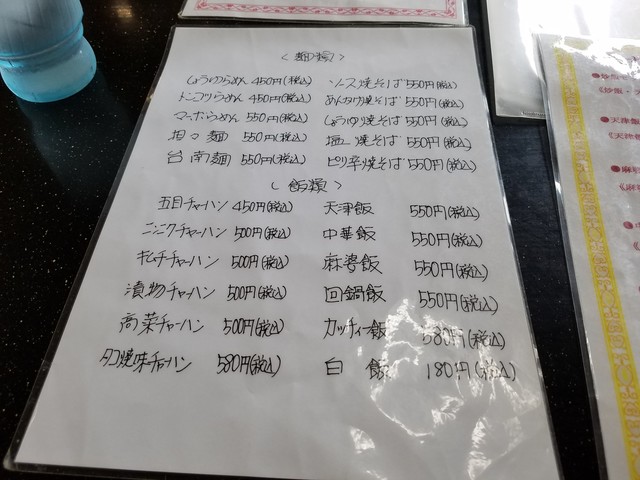 〈麺類〉
しょうゆらぁめん 450円(税込) ソース焼そば 550円(税込)
トンコツらぁめん 450円(税込) あんかけ焼そば 550円(税込)
マーボらぁめん 550円(税込) しょうゆ焼そば 550円(税込)
担々麺 550円(税込) 塩焼そば 550円(税込)
台南麺 550円(税込) ピリ辛焼そば 550円(税込)
〈飯類〉
五目チャーハン 450円(税込) 天津飯 550円(税込)
ニンニクチャーハン 500円(税込) 中華飯 550円(税込)
キムチチャーハン 500円(税込) 麻婆飯 550円(税込)
漬物チャーハン 500円(税込) 回鍋飯 550円(税込)
高菜チャーハン 500円(税込) カッティー飯 580円(税込)
タコ焼味チャーハン 580円(税込) 白飯 180円(税込)